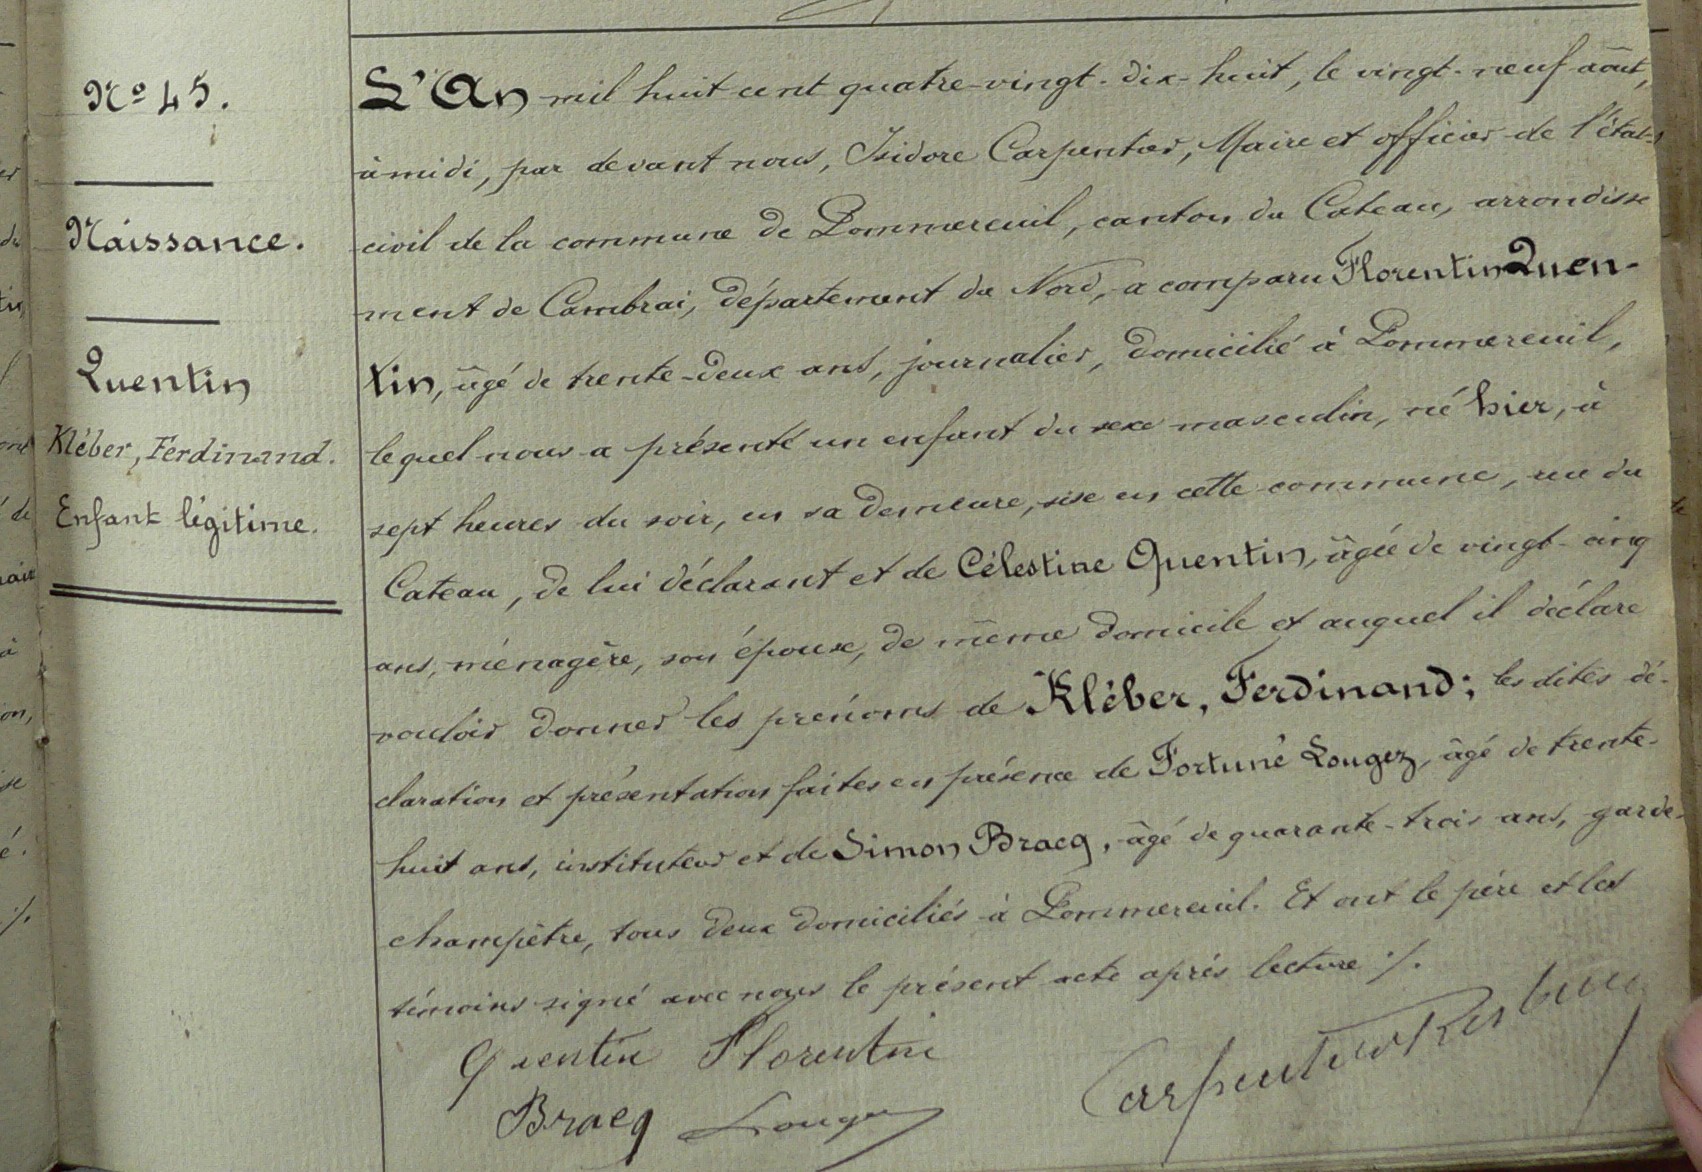 Nº 45.
Naissance.
Quentin
Kléber, Ferdinand.
Enfant légitime.
L'An mil huit cent quatre-vingt-dix-huit, le vingt-neuf août,
à midi, par devant nous, Isidore Carpentier, Maire et officier de l'état
civil de la commune de Pommereuil, canton du Cateau, arrondisse
ment de Cambrai, département du Nord, a comparu Florentin Quen-
tin, âgé de trente-deux ans, journalier, domicilié à Pommereuil,
lequel nous a présenté un enfant du sexe masculin, né hier, à
sept heures du soir, en sa demeure, sise en cette commune, rue du
Cateau, de lui déclarant et de Célestine Quentin, âgée de vingt-cinq
ans, ménagère, son épouse, de même domicile et auquel il déclare
vouloir donner les prénoms de Kléber, Ferdinand; les dites dé-
claration et présentation faites en présence de Fortuné Lougez, âgé de trente-
huit ans, instituteur et de Simon Bracq, âgé de quarante-trois ans, garde-
champêtre, tous deux domiciliés à Pommereuil. Et ont le père et les
témoins signé avec nous le présent acte après lecture ./.
Quentin Florentin
Carpentier
Bracq Lougez